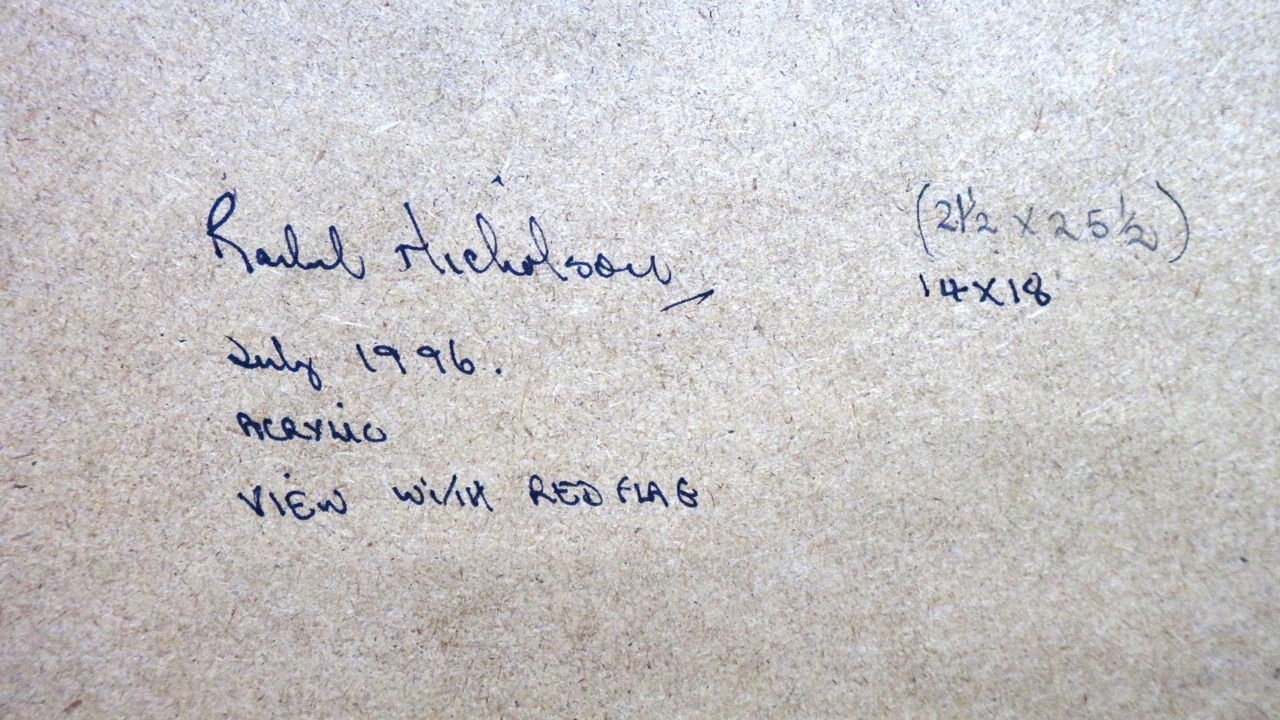 Rachel Nicholson
July 1996.
ACRYLIC
VIEW WITH RED FLAG
(21½ x 25½)
14X18